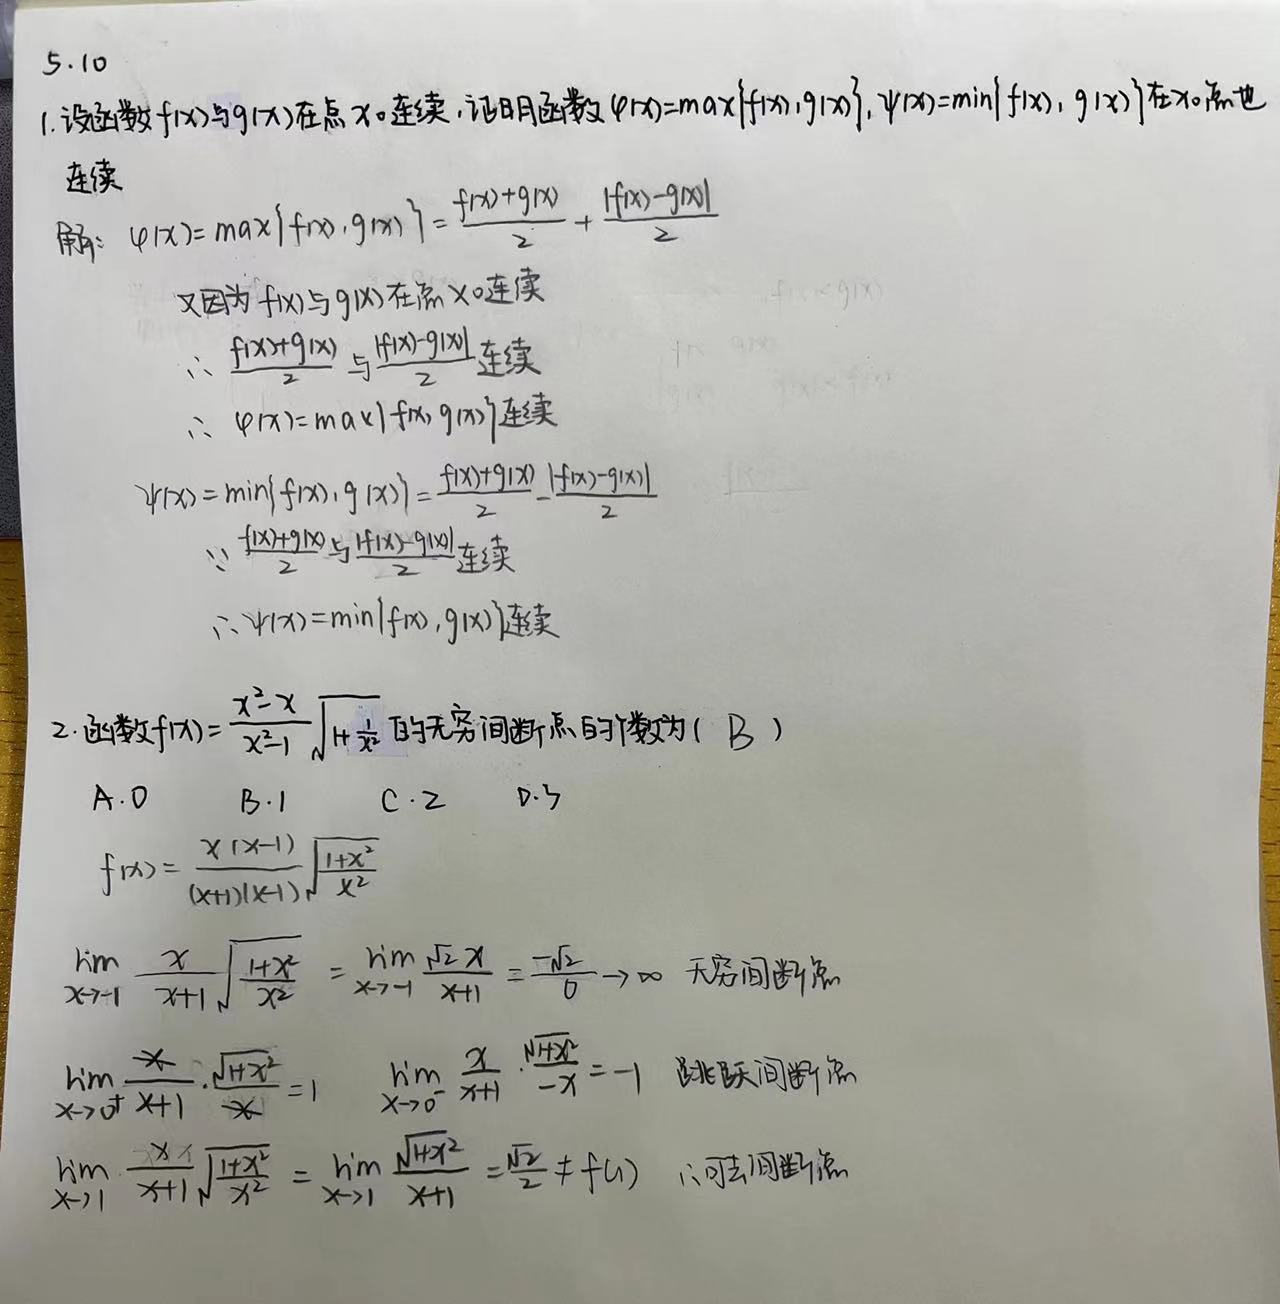 5.10
1.设函数f(x)与g(x)在点x₀连续,证明函数φ(x)=max{f(x),g(x)},ψ(x)=min{f(x),g(x)}在x₀点也
连续
解: φ(x)=max{f(x),g(x)}=(f(x)+g(x))/2 + |f(x)-g(x)|/2
又因为f(x)与g(x)在点x₀连续
∴ (f(x)+g(x))/2 与 |f(x)-g(x)|/2 连续
∴ φ(x)=max{f(x),g(x)}连续
ψ(x)=min{f(x),g(x)}=(f(x)+g(x))/2 - |f(x)-g(x)|/2
∵ (f(x)+g(x))/2 与 |f(x)-g(x)|/2 连续
∴ψ(x)=min{f(x),g(x)}连续
2.函数f(x)=(x²-x)/(x²-1) √(1+1/x²) 的无穷间断点的个数为( B )
A.0 B.1 C.2 D.3
f(x)= x(x-1)/((x+1)(x-1)) √((1+x²)/x²)
lim x→-1 x/(x+1) √((1+x²)/x²) = lim x→-1 √2x/(x+1) = -√2/0 →∞ 无穷间断点
lim x→0⁺ x/(x+1) · √(1+x²)/x =1 lim x→0⁻ x/(x+1) · √(1+x²)/-x = -1 跳跃间断点
lim x→1 x/(x+1) √((1+x²)/x²) = lim x→1 √(1+x²)/(x+1) = √2/2 ≠ f(1) ∴可去间断点